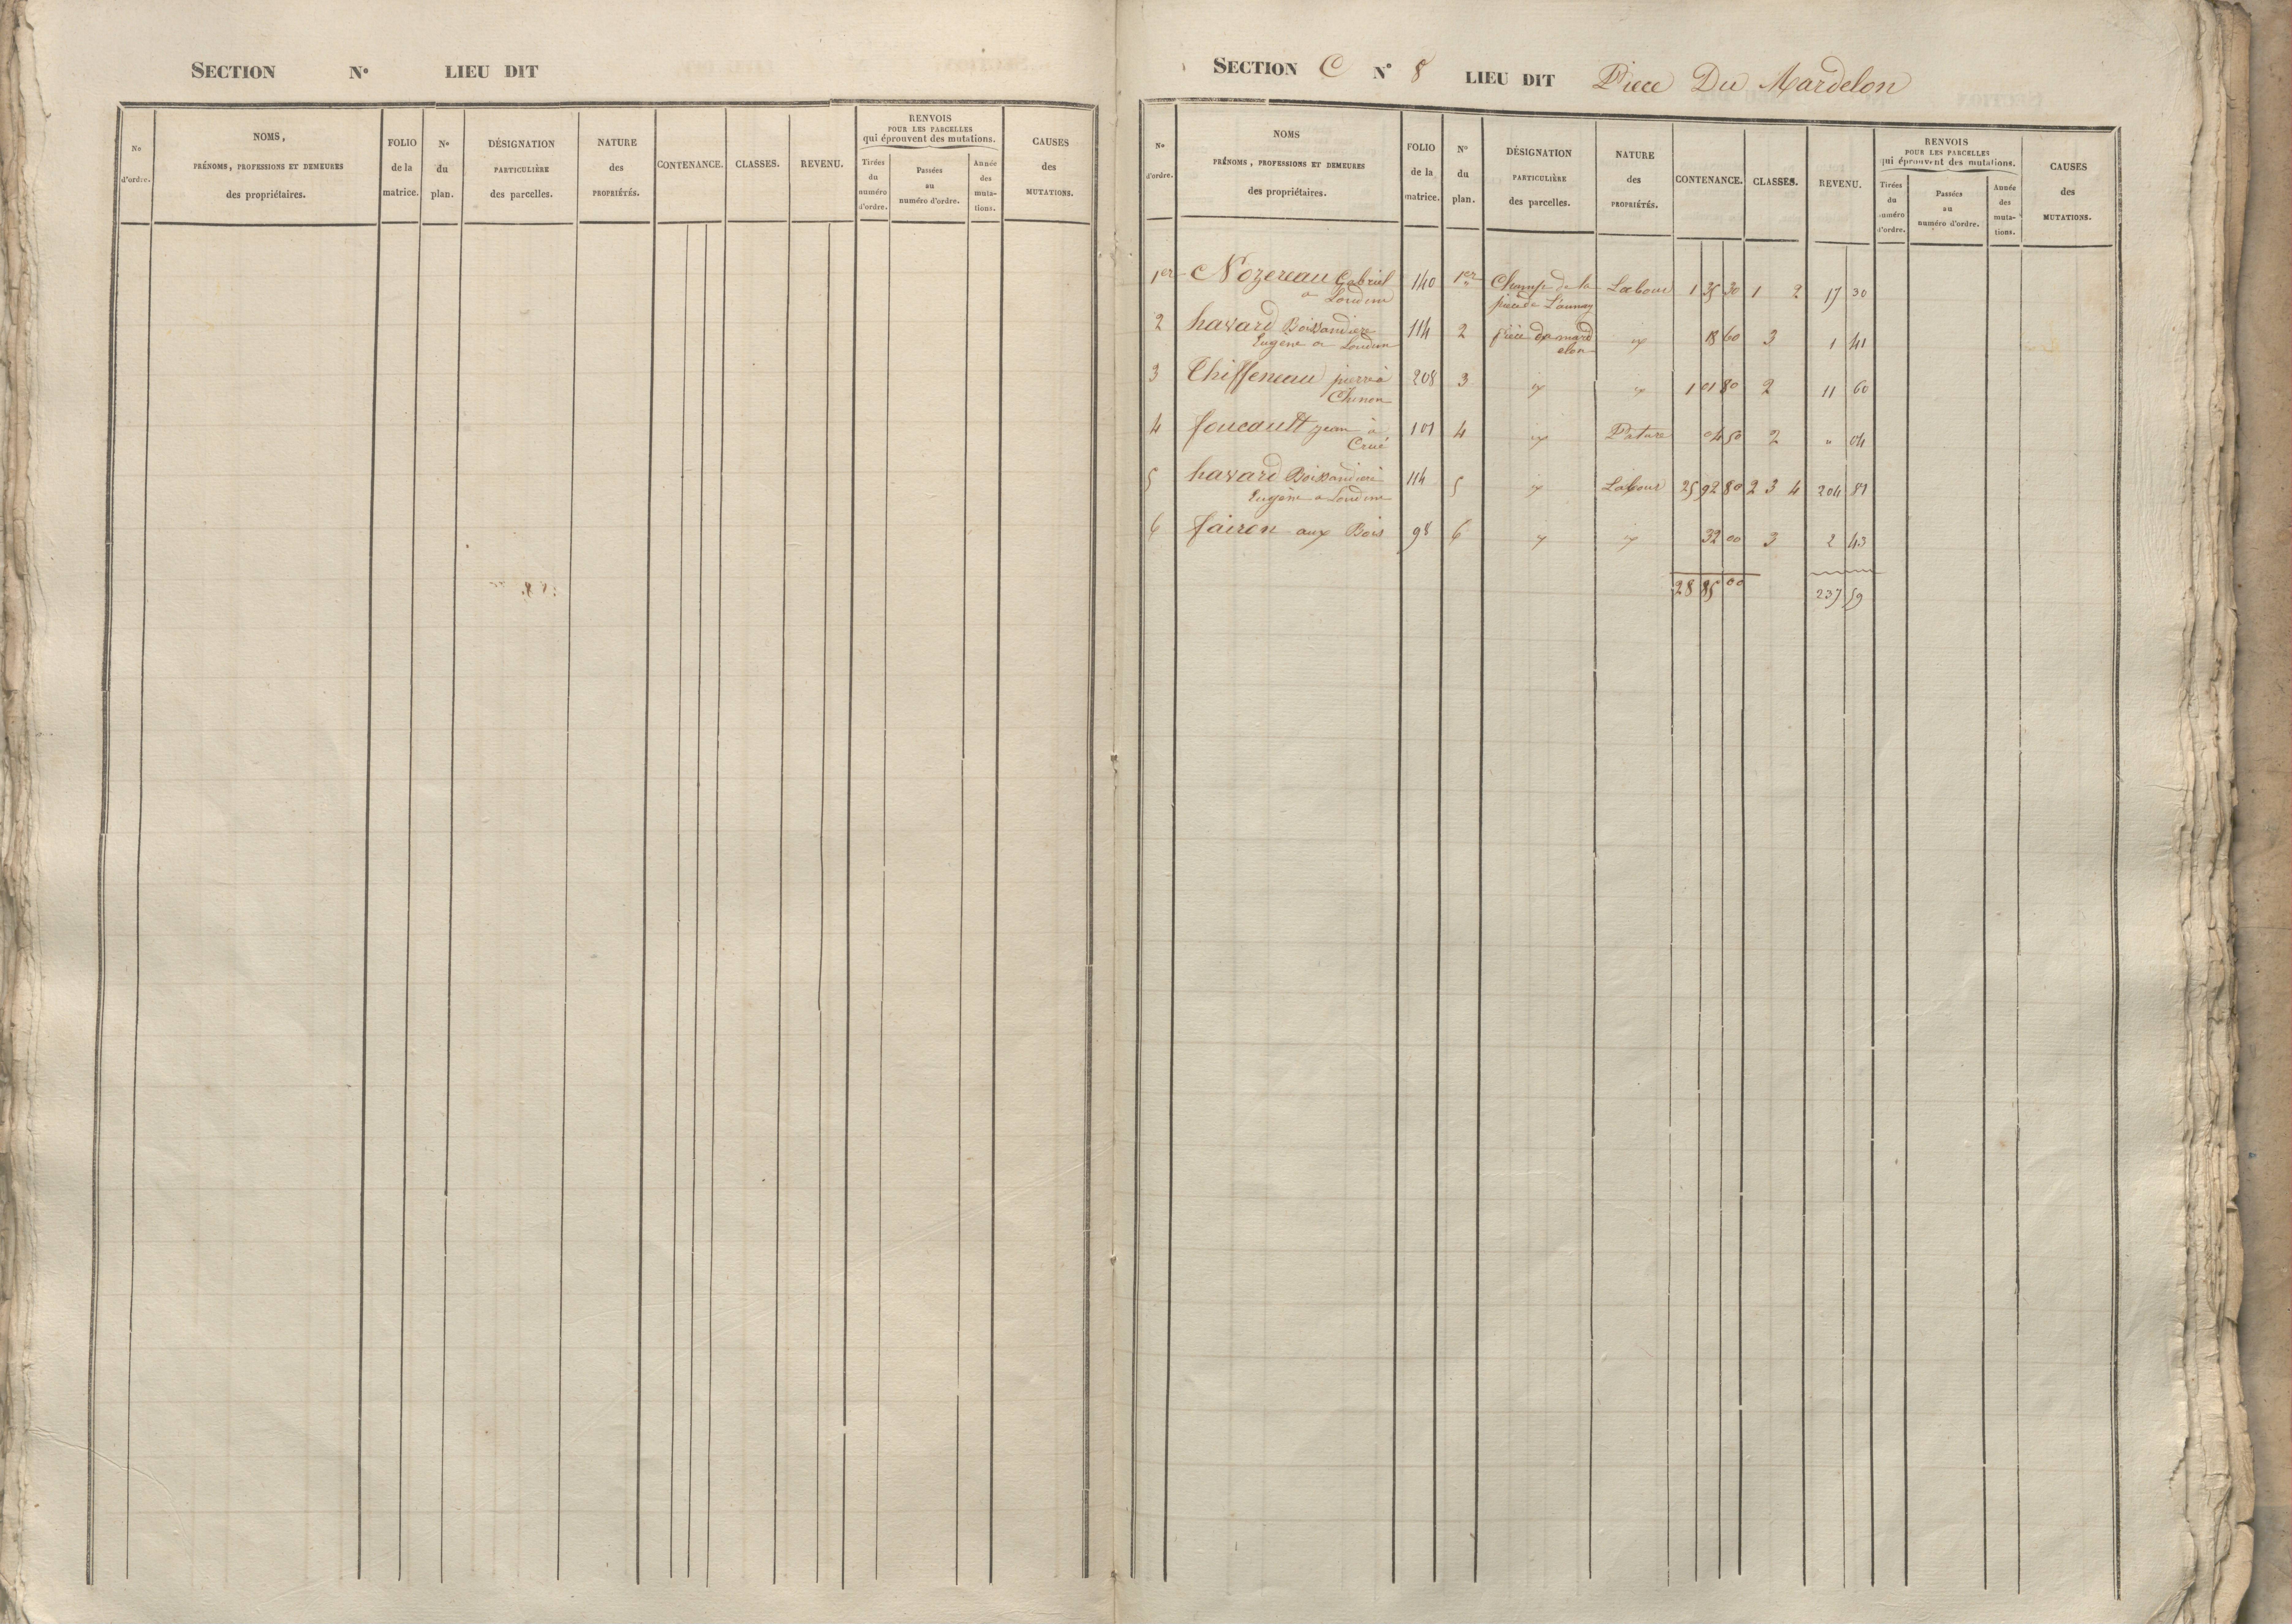 SECTION N° LIEU DIT
N° d'ordre.
NOMS,
PRÉNOMS, PROFESSIONS ET DEMEURES
des propriétaires.
FOLIO
de la
matrice.
N°
du
plan.
DÉSIGNATION
PARTICULIÈRE
des parcelles.
NATURE
des
PROPRIÉTÉS.
CONTENANCE.
CLASSES.
REVENU.
RENVOIS
POUR LES PARCELLES
qui éprouvent des mutations.
Tirées
du
numéro
d'ordre.
Passées
au
numéro d'ordre.
Année
des
muta-
tions.
CAUSES
des
MUTATIONS.
SECTION C N° 8 LIEU DIT Piece Du Mardelon
N°
d'ordre.
NOMS
PRÉNOMS, PROFESSIONS ET DEMEURES
des propriétaires.
FOLIO
de la
matrice.
N°
du
plan.
DÉSIGNATION
PARTICULIÈRE
des parcelles.
NATURE
des
PROPRIÉTÉS.
CONTENANCE.
CLASSES.
REVENU.
RENVOIS
POUR LES PARCELLES
qui éprouvent des mutations.
Tirées
du
numéro
d'ordre.
Passées
au
numéro d'ordre.
Année
des
muta-
tions.
CAUSES
des
MUTATIONS.
1er Nozereau Gabriel 140 1er Champ de la Labour 1 35 30 1 2 17 30
a Loudun piece de L'aunay
2 havard Boissandiere 114 2 piece du mard 18 60 3 1 41
Eugene a Loudun elon
3 Thiffeneau pierre à 208 3 1 01 80 2 11 60
Chinon
4 foucault jean à 101 4 Pature 04 50 2 " 04
Crué
5 havard Boissandiere 114 5 Labour 25 92 80 2 3 4 204 81
Eugène a Loudun
6 fairon aux Bois 98 6 32 00 3 2 43
28 85 00 237 59